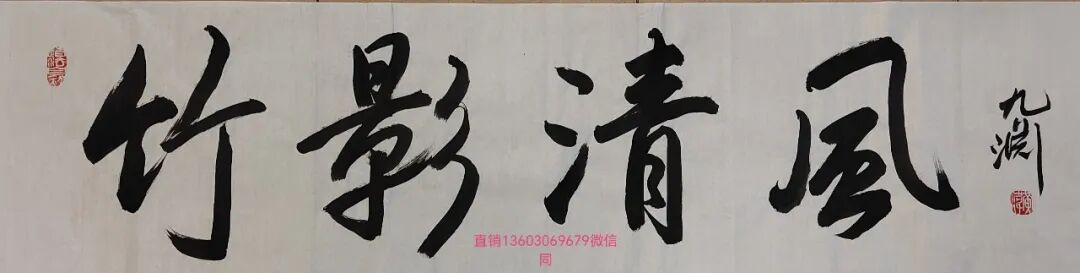 竹影清風
九渊
直销13603069679微信
同